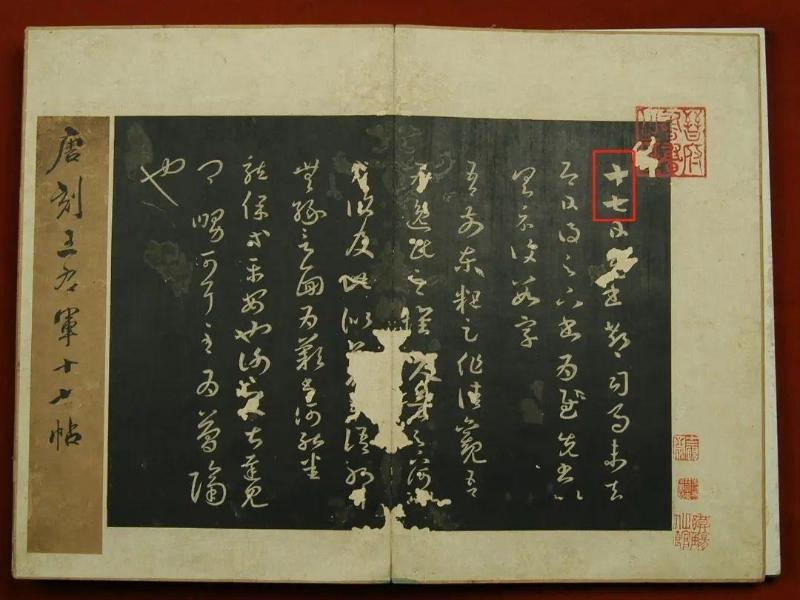 十七日先書郗司馬未去
即日得足下書為慰先書以
具示復數字
吾前東粗足作佳觀吾
為逸民之懷久矣足下何
復及此似夢中語耶
無緣言面為歎書何能悉
龍保等平安也謝之甚遲見
卿舅可耳至為簡隔
也
唐刻王右軍十七帖